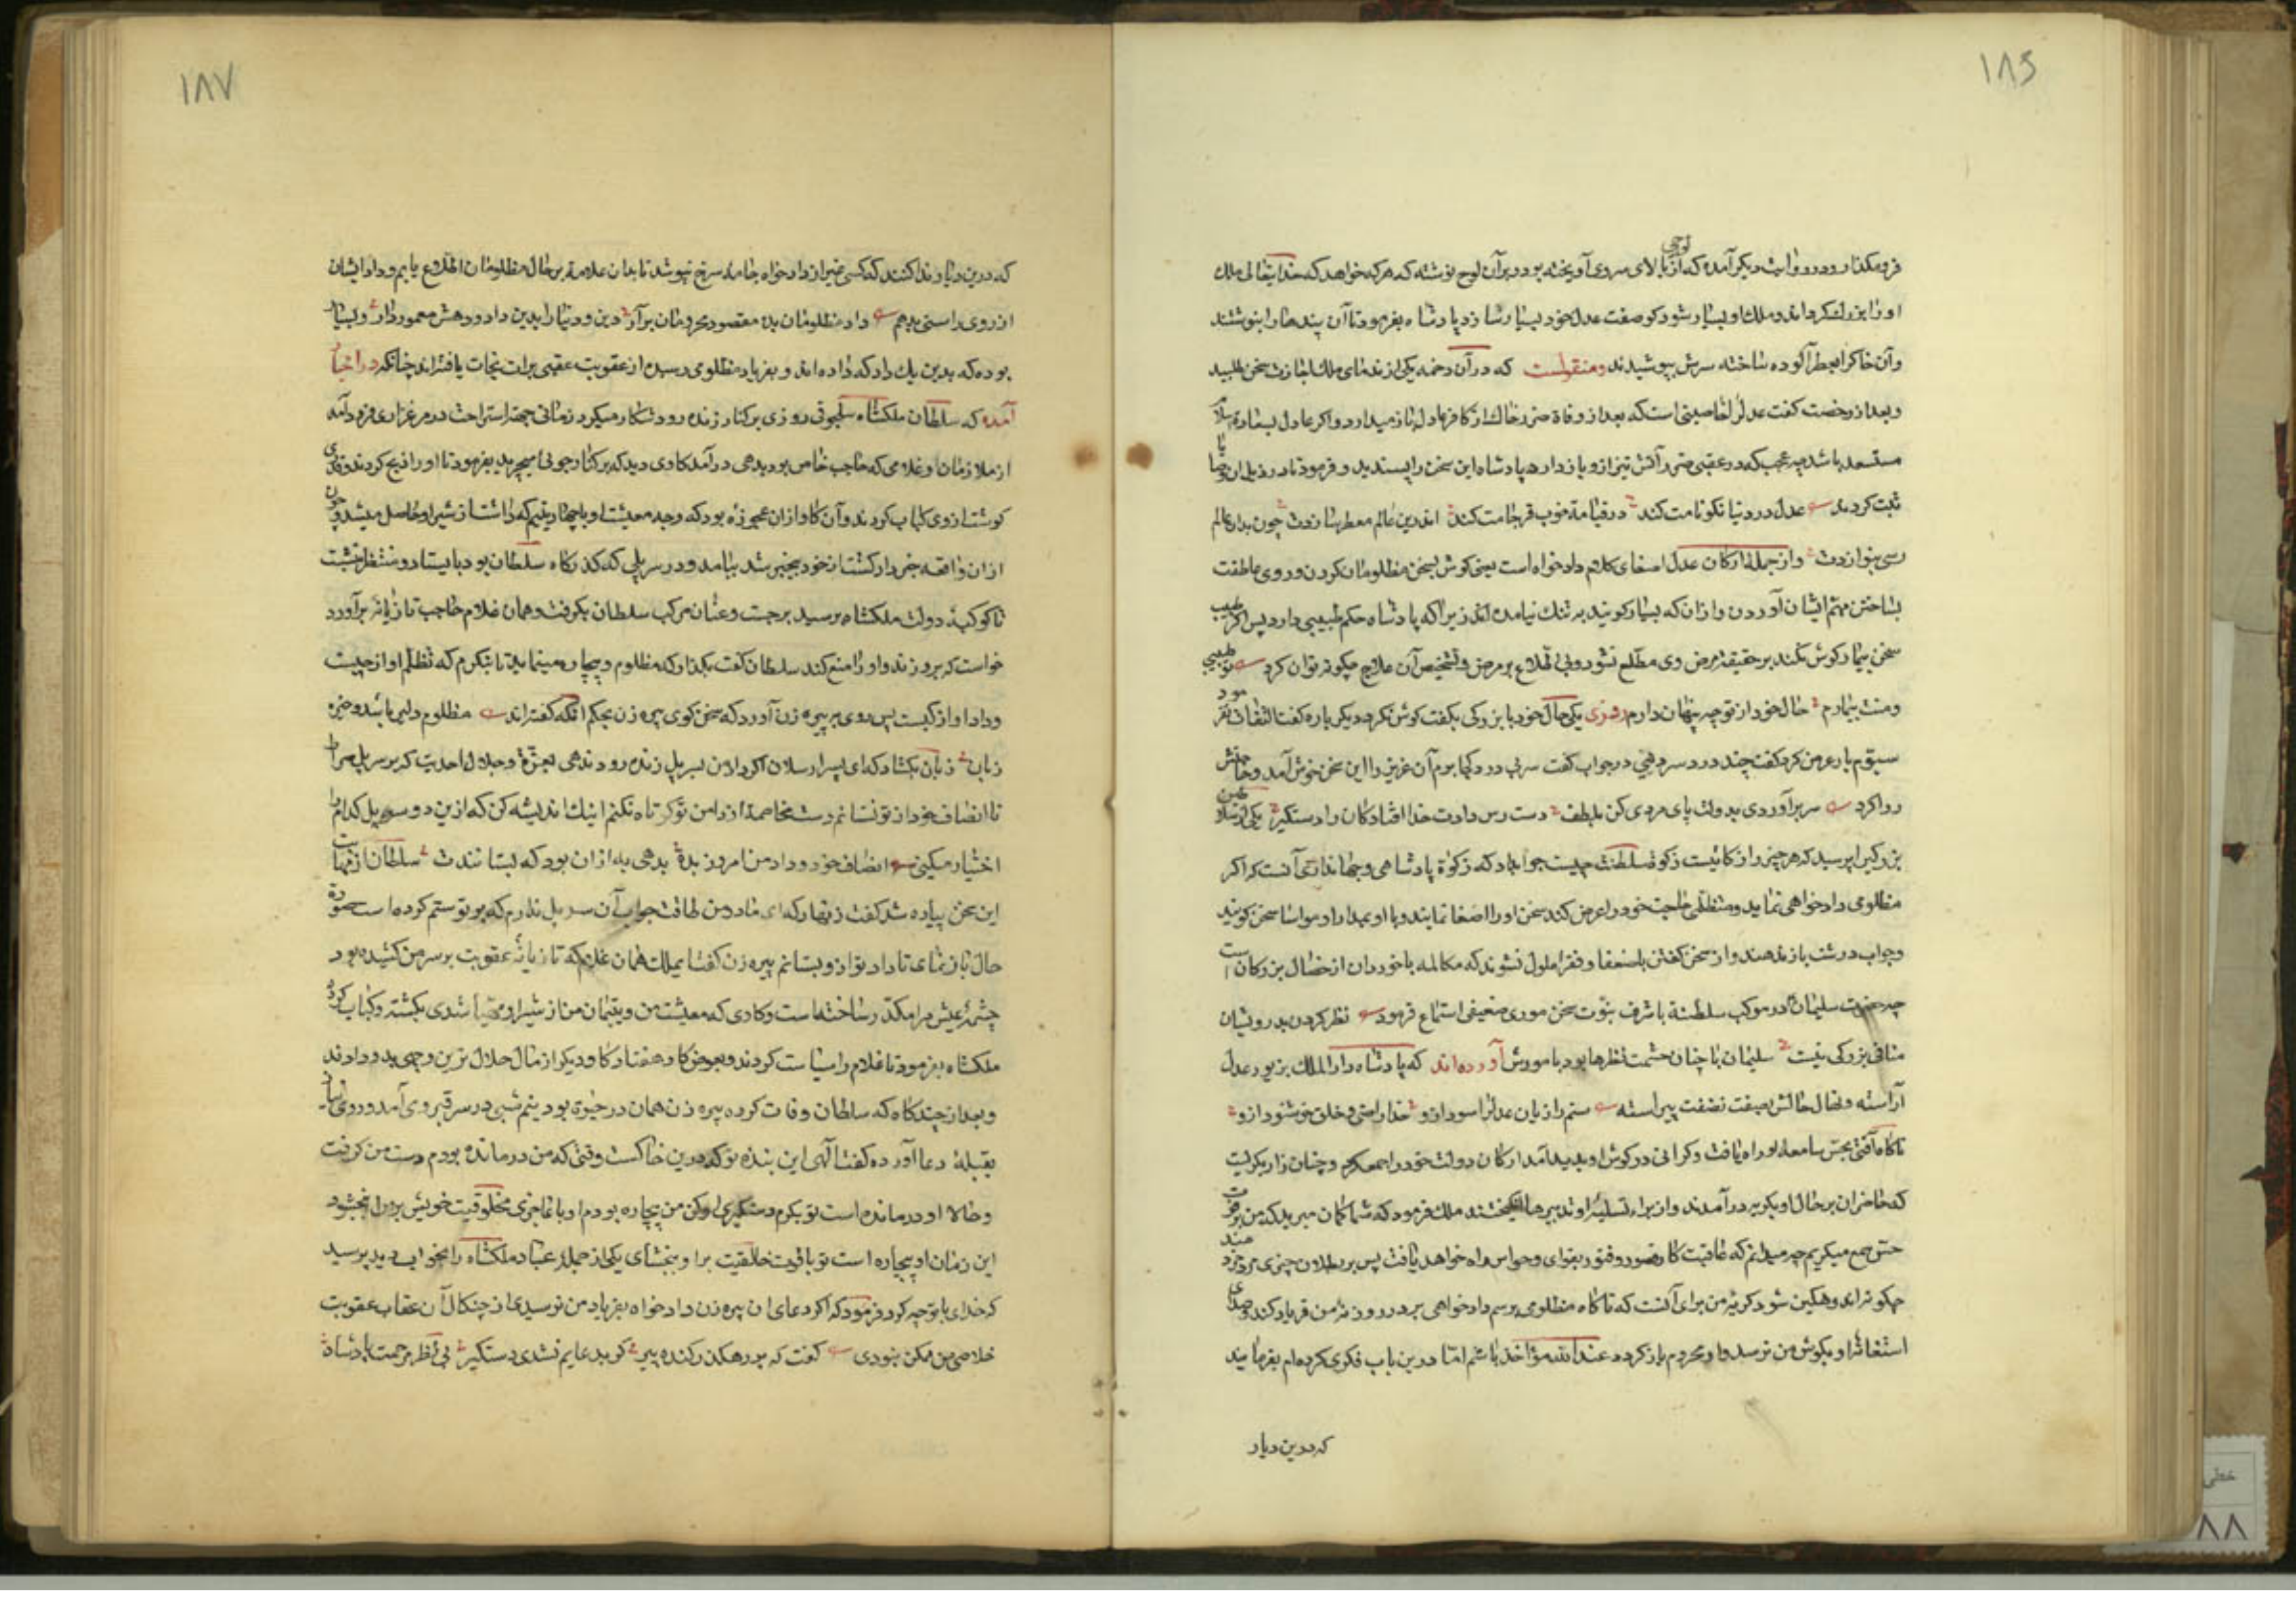 ۱۸۶
فرو مکذار و در روایت دیکر آمده که از بالای سروی لوحی آویخته بود و برآن لوح نوشته که هرکه خواهد که خدایتعالی ملک
او را بزرک کرداند و ملک او بسیار شود کو صفت عدل خود بسیار ساز د پادشاه بفرمود تا آن پندها را بنوشتند
وآن خاک را بعطر آلوده ساخته سرش بپوشیدند ومنقولست که درآن دخمه یکی از ندمای ملک اجازت سخن طلبید
وبعد از رخصت کفت عدل را خاصیتی است که بعد از وفاة ضرر خاک از کافر عادل باز میدارد و اکر عادل بسعادة اسلام
مستسعد باشد چه عجب که در عقبی ضرر آتش نیز ازو باز دارد پادشاه این سخن را پسندید و فرمود تا در ذیل آن وصایا
ثبت کردند عدل در دنیا نکو نامت کند در قیامة خوب فرجامت کند اندرین عالم معظم سازدت چون بدان عالم
رسی بنوازدت و از جمله ارکان عدل اصغای کلام دادخواه است یعنی کوش بسخن مظلومان کردن و روی عاطفت
بساختن مهم ایشان آوردن و ازان که بسیار کویند به تنک نیامدن اند زیرا که پادشاه حکم طبیبی دارد پس اکر طبیب
سخن بیمار کوش نکند بر حقیقة مرض وی مطلع نشود و بی اطلاع بر مرض و تشخیص آن علاج چکونه توان کرد تو طبیبی
ومنت بیمارم حال خود از تو چه پنهان دارم روزی یکی حال خود با بزرکی بکفت کوش نکرد دیکر باره کفت التفات نفرمود
سیوم بار عرض کرد کفت چند درد سر دهی در جواب کفت سر تویی درد کجا برم آن عزیز را این سخن خوش آمد و حاجتش
روا کرد سر برآوردی بدولت پای مردی کن بلطف دست رس دادت خدا افتادکان را دستکیر یکی از سلاطین
بزرکی را پرسید که هر چیز را زکاتیست زکوة سلطنت چیست جواب داد که زکوة پادشاهی و جهانداری آنست که اکر
مظلومی دادخواهی نماید و متظلمی حاجت خود را عرض کند سخن او را اصغا نمایند و با او بمدارا و مواسا سخن کویند
وجواب درشت باز ندهند و از سخن کفتن با ضعفا و فقرا ملول نشوند که مکالمه با خوردان از خصال بزرکان است
چه حضرت سلیمان در موکب سلطنة با شرف نبوت سخن موری ضعیف استماع فرمود نظر کردن بدرویشان
منافی بزرکی نیست سلیمان با چنان حشمت نظرها بود با مورش آورده اند که پادشاه دارالملک بزیور عدل
آراسته و نهال حالش بصفت نصفت پیراسته ستم را زیان عدل را سود ازو خدا راضی و خلق خوشنود ازو
ناکاه آفتی بحس سامعه او راه یافت و کرانی در کوش او پدید آمد ارکان دولت خود را جمع کرد و چنان زار بکریست
که حاضران بر حال او بکریه درآمدند و از برای تسلیه او تدبیرها انکیختند ملک فرمود که شما کمان میبرید که من بر فوت
حس سمع میکریم چه میدانم که عاقبت کار قصور و فتور بقوای و حواس راه خواهد یافت پس بر بطلان چیزی خردمند
چکونه اندوهکین شود کریه من برای آنست که ناکاه مظلومی برسم دادخواهی بر در روزنه من فریاد کند و صدای
استغاثه او بکوش من نرسد و او محروم باز کردد و عندالله مؤاخذ باشم اما درین باب فکری کرده ام بفرمایید
که درین دیار
۱۸۷
که درین دیار ندا کنند که کسی غیر از دادخواه جامه سرخ نپوشد تا بدان علامة بر حال مظلومان اطلاع یابم و داد ایشان
از روی راستی بدهم داد مظلومان بده مقصود محرومان برآر دین و دنیا را بدین داد و دهش معمور دار و بسیار
بوده که بدین یک داد که داده اند و بفریاد مظلومی رسیده از عقوبت عقبی برات نجات یافته اند چنانکه در اخبار
آمده که سلطان ملکشاه سلجوقی روزی برکنار زنده رود شکار میکرد زمانی جهة استراحت در مرغزاری فرود آمد
از ملازمان او غلامی که حاجب خاص بود بدهی درآمد کاوی دید که برکنار جوئی میچرید بفرمود تا او را ذبح کردند و قدری
کوشت از وی کباب کردند و آن کاو ازان عجوزه بود که وجه معیشت او با چهار یتیم که داشت از شیر او حاصل میشد و چون
ازان واقعه خبردار کشت از خود بیخبر شد بیامد و در سر پلی که کذرکاه سلطان بود بایستاد و منتظر نشست
تا کوکبه دولت ملکشاه برسید برجست و عنان مرکب سلطان بکرفت و همان غلام حاجب تازیانه برآورد
خواست که برو زند و او را منع کند سلطان کفت بکذار که مظلوم و بیچاره مینماید تا بنکرم که تظلم او از چیست
وداد او از کیست پس روی بر پیره زن آورد که سخن کوی پیره زن بحکم آنکه کفته اند مظلوم دلیر باشد و خیره
زبان زبان بکشاد که ای پسر ارسلان اکر داد من بسر پل زنده رود ندهی بعزة و جلال احدیت که بر سر پل صراط
تا انصاف خود از تو نستانم دست مخاصمه از دامن تو کوتاه نکنم اینک اندیشه کن که ازین دو سر پل کدام را
اختیار میکنی انصاف خود و داد من امروز بده بدهی به ازان بود که بستانندت سلطان از مهابت
این سخن پیاده شد کفت زنهار که ای مادر من طاقت جواب آن سر پل ندارم که بر تو ستم کرده است صورة
حال باز نمای تا داد تو ازو بستانم پیره زن کفت ای ملک همان غلام که تازیانه عقوبت بر سر من کشیده بود
چشمه عیش مرا مکدر ساخته است و کاوی که معیشت من و یتیمان من از شیر او مهیا شدی بکشته و کباب کرده
ملکشاه بفرمود تا غلام را سیاست کردند و بعوض کاو هفتاد کاو دیکر از مال حلال ترین وجهی بدو دادند
وبعد از چند کاه که سلطان وفات کرده پیره زن همان در حیوة بود نیم شبی در سر قبر وی آمد و روی نیاز
بقبله دعا آورده کفت الهی این بنده تو که درین خاکست وقتی که من درمانده بودم دست من کرفت
وحالا او درمانده است تو بکرم دستکیری او کن من بیچاره بودم او با عاجزی مخلوقیت خویش بر من ببخشود
این زمان او بیچاره است تو با قدرت خالقیت بر او ببخشای یکی از جمله عباد ملکشاه را بخواب دید پرسید
که خدای با تو چه کرد فرمود که اکر دعای ان پیره زن دادخواه بفریاد من نرسیدی از چنکال آن عقاب عقوبت
خلاصی من ممکن نبودی کفت که بر رهکذر کنده پیر کو بدعایم نشدی دستکیر بی نظر مرحمت پادشاه